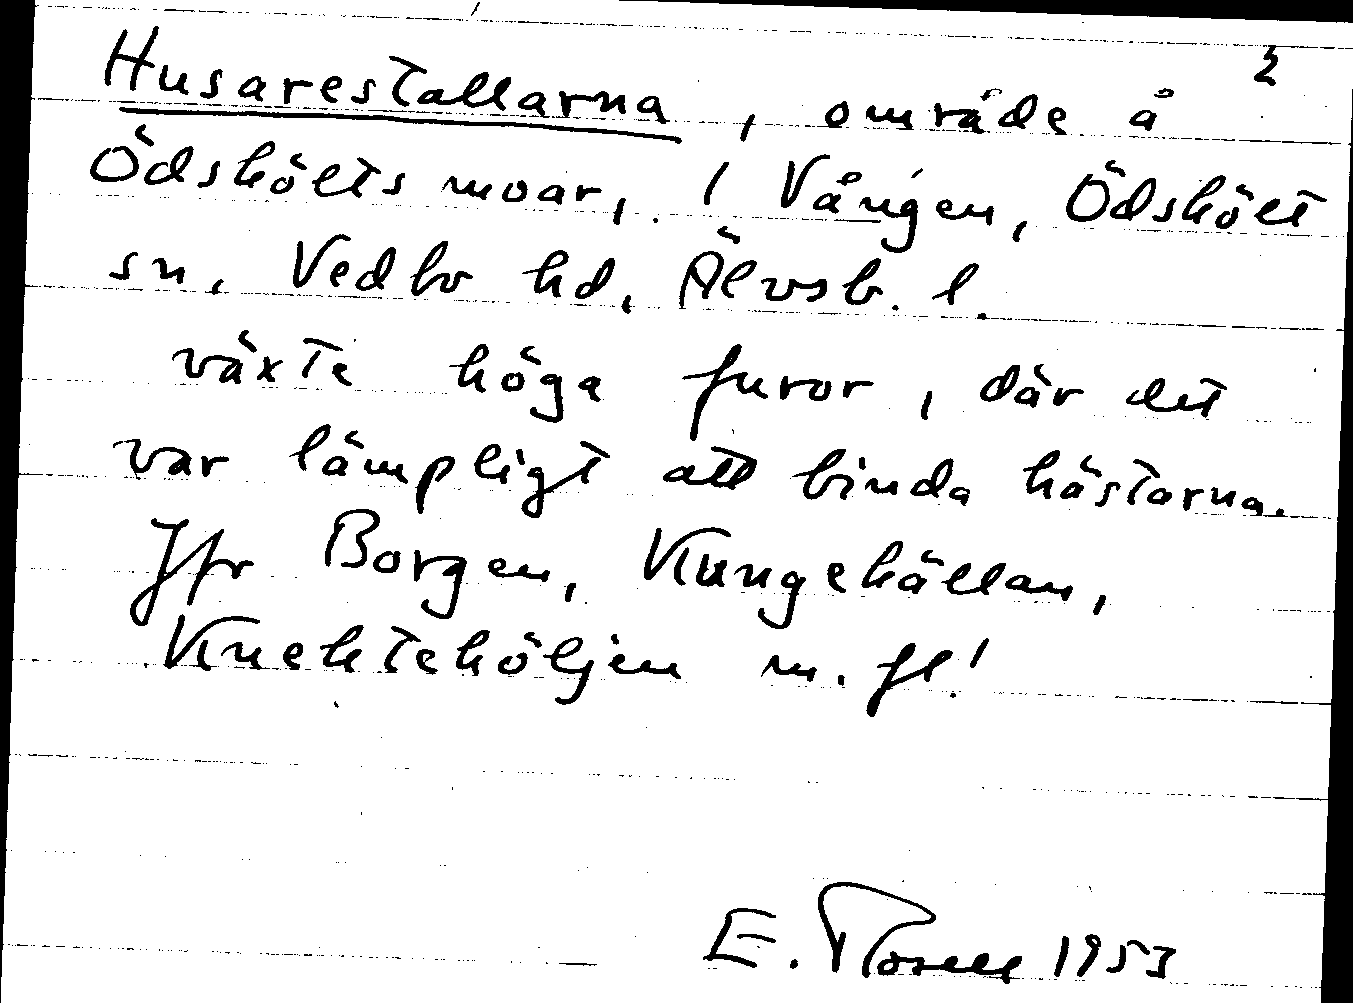 2
Husarestallarna, område å
Ödskölts moar, 1 Vången, Ödskölt
sn. Vedbo hd, Älvsb. l.
växte höga furor, där det
var lämpligt att binda hästarna.
Jfr Borgen, Kungekällan,
Knektehöljen m. fl!
E. Rosell 1953